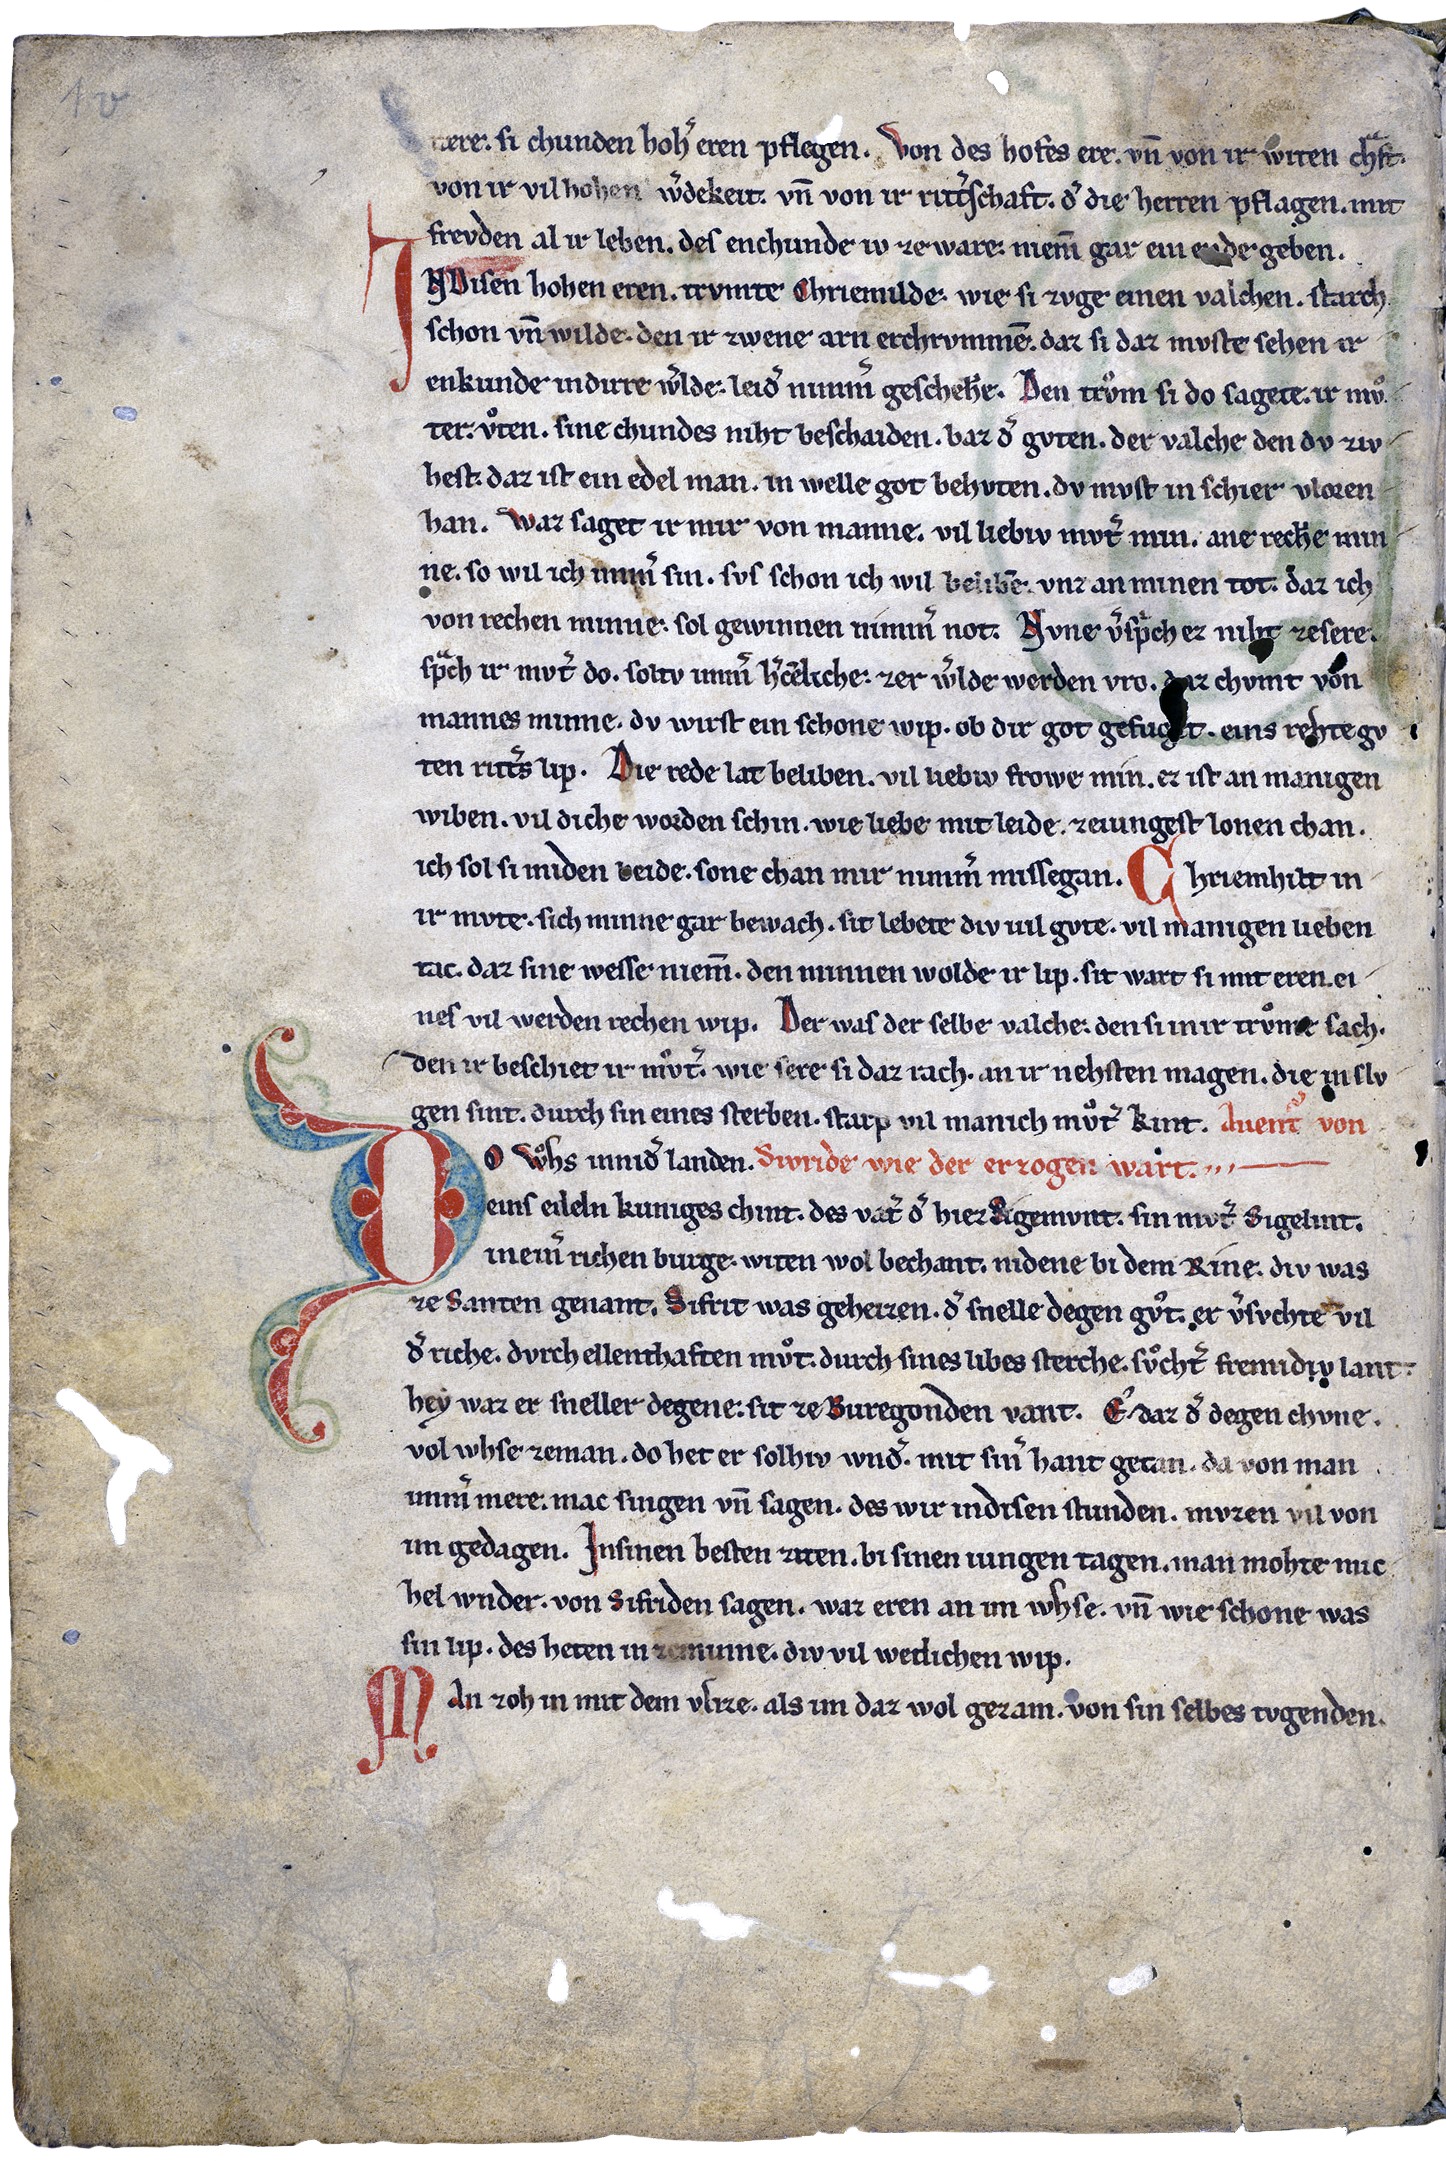 1v
nere. si chunden hoh͛ eren pflegen. Von des hofes ere. vn̄ von ir witen chᷓft.
von ir vil hohen w͛dekeit. vn̄ von ir ritt͛schaft. d͛ die herren pflagen. mit
frevden al ir leben. des enchunde iv ze ware. niem̄ gar ein ende geben.
INDisen hohen eren. trvmte Chriemilde. wie si zvge einen valchen. starch
schon vn̄ wilde. den ir zwene arn erchrvmmē. daz si daz mvste sehen ir
enkunde in dirre w͛lde. leid͛ nimm͛ gescheh͛e. Den trv̊m si do sagete. ir mv̊
ter. v̊ten. sine chundes niht beschaiden. baz d͛ gvten. der valche den dv ziv
hest. daz ist ein edel man. in welle got behvten. dv mvst in schier vloren
han. Waz saget ir mir von manne. vil liebiv mvt͛ min. ane rech̄e min
ne. so wil ich imm͛ sin. svs schon ich wil belibē. vnz an minen tot. daz ich
von rechen minne. sol gewinnen nimm͛ not. Nvne v͛spᷓch ez niht ze sere.
spᷓch ir mvt͛ do. soltv imm͛ h͛cēliche. zer w͛lde werden vro. daz chvmt von
mannes minne. dv wirst ein schone wip. ob dir got gefuget. eins rehte gv
ten ritt͛s lip. Die rede lat beliben. vil liebiv frowe min. ez ist an manigen
wiben. vil diche worden schin. wie liebe mit leide. ze iungest lonen chan.
ich sol si miden beide. sone chan mir nimm͛ missegan. Chriemhilt in
ir mvte. sich minne gar bewach. sit lebete div vil gvte. vil manigen lieben
tac. daz sine wesse niem̄. den minnen wolde ir lip. sit wart si mit eren. ei
nes vil werden rechen wip. Der was der selbe valche. den si in ir trv̊me sach.
den ir beschiet ir mv̊t͛. wie sere si daz rach. an ir nehsten magen. die in slv
gen sint. durch sin eines sterben. starp vil manich mv̊t͛ kint. Auent͛ von
DO wh̊s in nid͛ landen. Sivride wie der erzogen wart.
eins edeln kuniges chint. des vat͛ d͛ hiez Sigemvnt. sin mvt͛ Sigelint.
in eim͛ richen burge. witen wol bechant. nidene bi dem Rine. div was
ze Santen genant. Sifrit was geheizen. d͛ snelle degen gv̊t. er v͛svchte vil
d͛ riche. dvrch ellenthaften mv̊t. durch sines libes sterche. sv̊cht͛ fremdiv lant.
hey waz er sneller degene. sit ze Buregonden vant. E͛ daz d͛ degen chvne.
vol whse ze man. do het er solhiv wnd͛. mit sin͛ hant getan. da von man
imm͛ mere. mac singen vn̄ sagen. des wir in disen stunden. mvzen vil von
im gedagen. In sinen besten ziten. bi sinen iungen tagen. man mohte mic
hel wnder. von Sifriden sagen. waz eren an im whse. vn̄ wie schone was
sin lip. des heten in ze minne. div vil wetlichen wip.
MAn zoh in mit dem vlize. als im daz wol gezam. von sin selbes tvgenden.